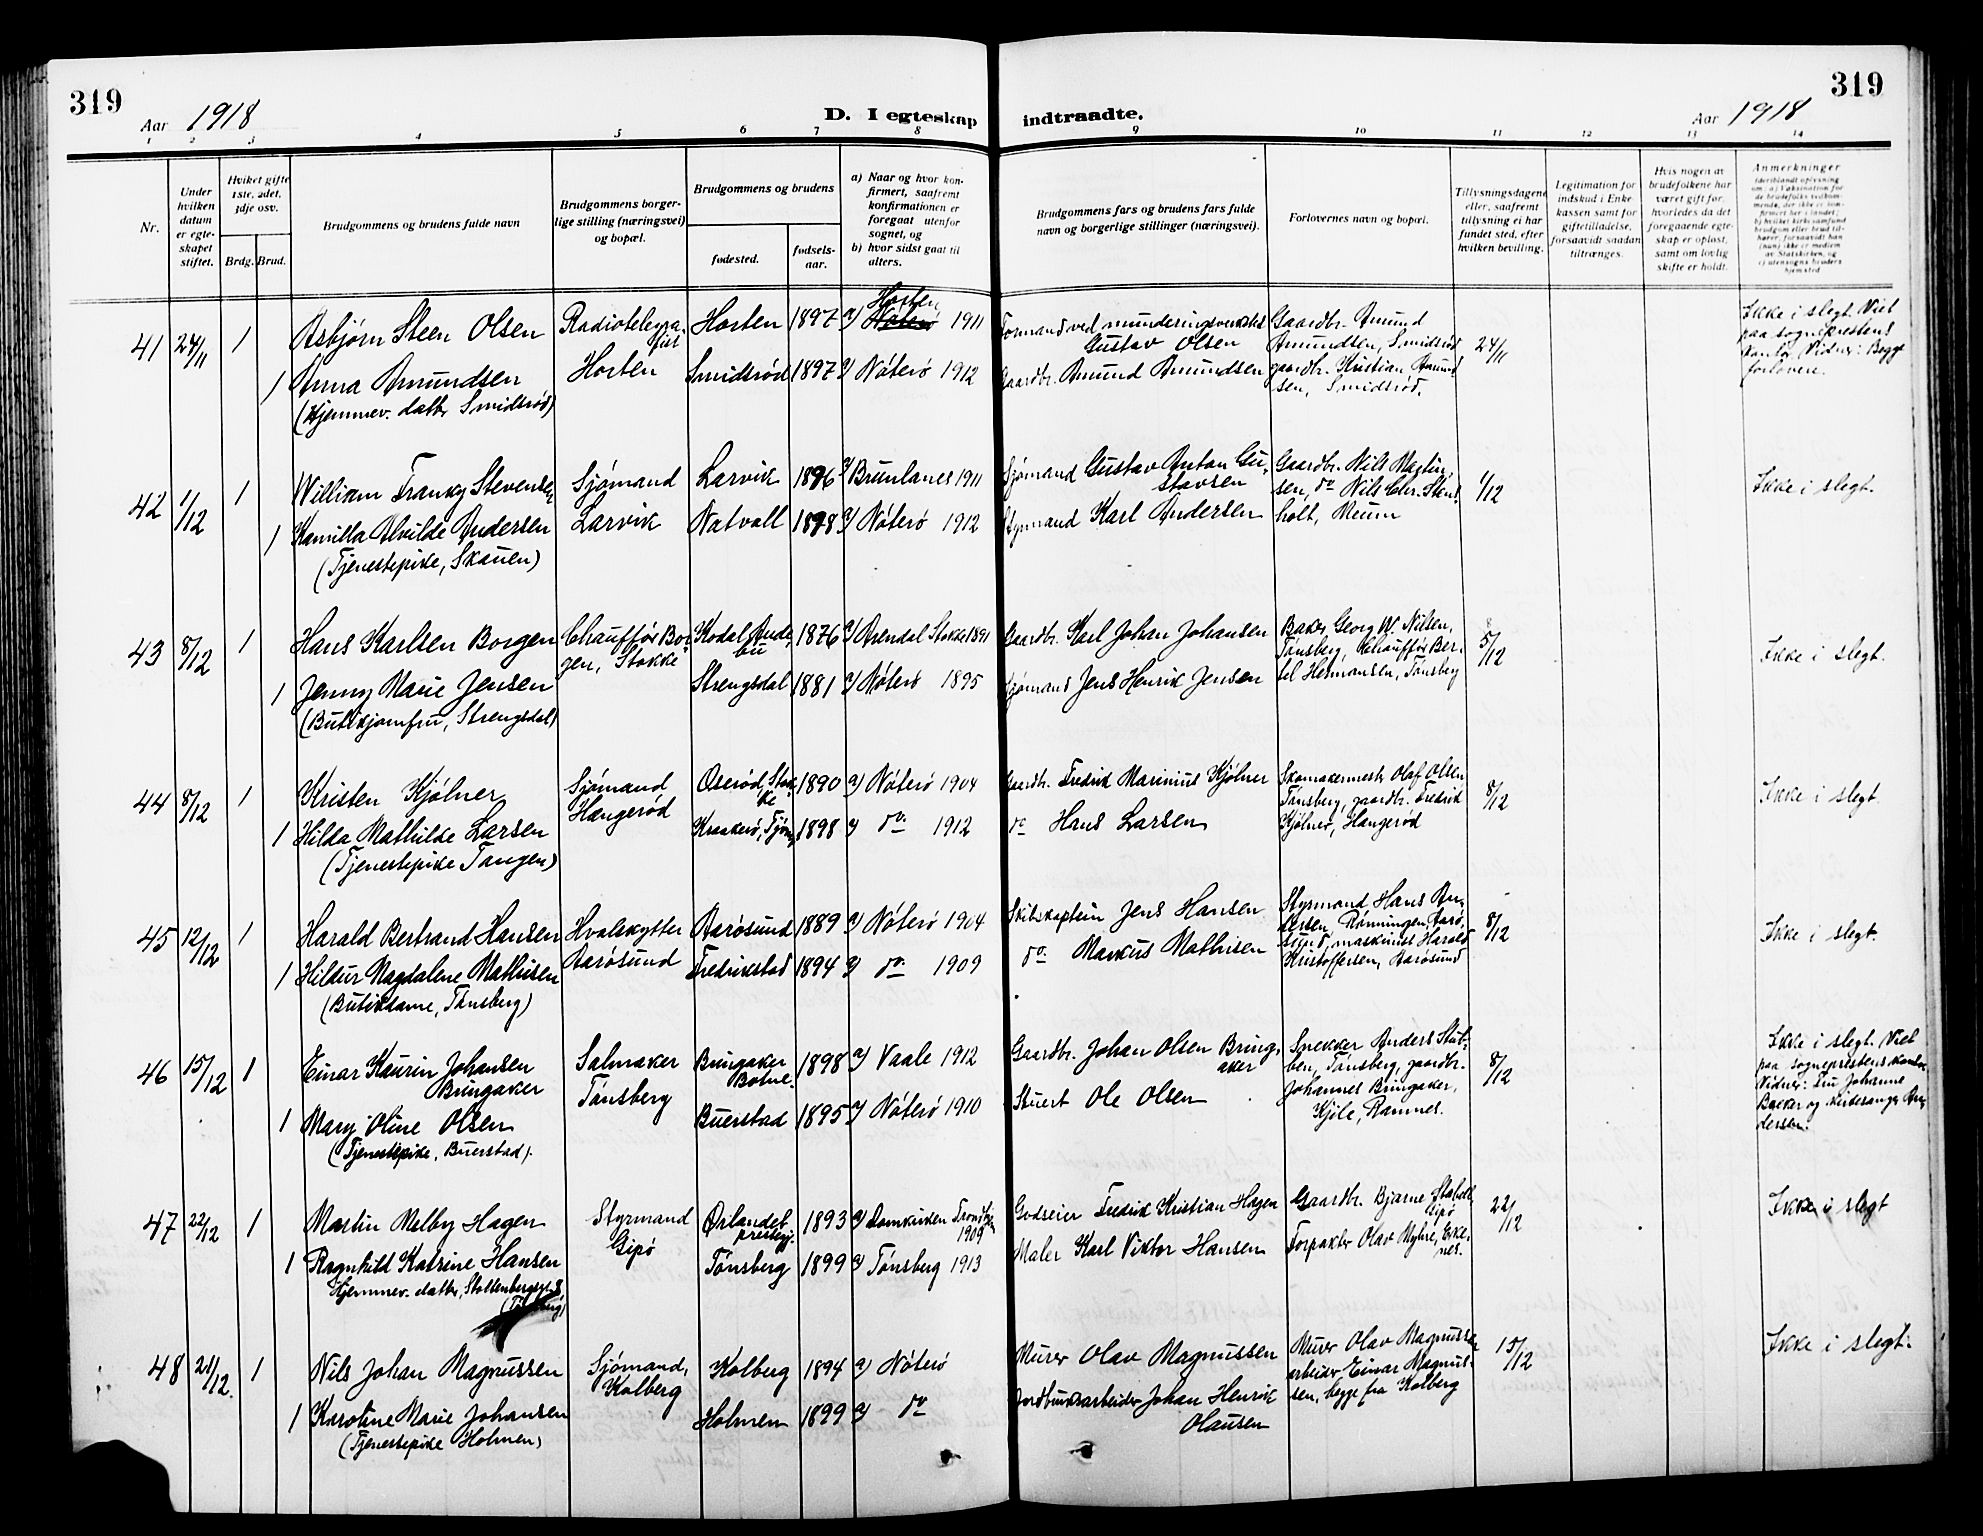 319
319
Aar 1918
D. I egteskap indtraadte.
Aar 1918
1 2 3 4 5 6 7 8 9 10 11 12 13 14
Nr.
Under hvilken datum er egteskapet stiftet.
Hvilket gifte 1ste, 2det, 3dje osv.
Brdg. Brud.
Brudgommens og brudens fulde navn
Brudgommens borgerlige stilling (næringsvei) og bopæl.
Brudgommens og brudens
fødested.
fødselsaar.
a) Naar og hvor konfirmert, saafremt konfirmationen er foregaat utenfor sognet, og
b) hvor sidst gaat til alters.
Brudgommens fars og brudens fars fulde navn og borgerlige stillinger (næringsvei).
Forlovernes navn og bopæl.
Tillysningsdagene eller, saafremt tillysning ei har fundet sted, efter hvilken bevilling.
Legitimation for indskud i Enkekassen samt for giftetilladelse, forsaavidt saadan tiltrænges.
Hvis nogen av brudefolkene har været gift før, hvorledes da det foregaaende egteskap er opløst, samt om lovlig skifte er holdt.
Anmerkninger
41 24/11 1 Asbjørn Steen Olsen Radiotelegrafist Horten Horten 1897 a) Horten 1911 Formand ved munderingsverksted Gustav Olsen
Gaardbr. Amund Amundsen, Smidsrød gaardbr. Kristian Amundsen, Smidsrød. 24/11
Ikke i slegt. Viet paa sogneprestens kontor. Vidner: Begge forlovere.
1 Anna Amundsen Smidsrød 1897 a) Nøterø 1912 Gaardbr. Amund Amundsen
(Hjemmev. datter Smidsrød)
42 1/12 1 William Franky Stevensen Sjømand Larvik Larvik 1896 a) Brunlanes 1911 Sjømand Gustav Anton Gustavsen
Gaardbr. Nils Martinsen, do Nils Chr. Stensholt, Meum 1/12 Ikke i slegt.
1 Kamilla Alvilde Andersen Natvall 1898 a) Nøterø 1912 Styrmand Karl Andersen
(Tjenestepike, Skauen)
43 8/12 1 Hans Karlsen Borgen Chauffør Borgen, Stokke Kodal Andebu 1876 a) Arendal Stokke 1891 Gaardbr. Karl Johan Johansen
Baker Georg W. Nilsen, Tønsberg, Chauffør Bertel Hermansen, Tønsberg 5/12 Ikke i slegt.
1 Jenny Marie Jensen Strengsdal 1881 a) Nøterø 1895 Sjømand Jens Henrik Jensen
(Butikjomfru, Strengsdal)
44 8/12 1 Kristen Kjølner Sjømand Hangerød Oserød, Stokke 1890 a) Nøterø 1904 Gaardbr. Fredrik Marinius Kjølner
Skomakermestr. Olaf Olsen Tønsberg, gaardbr. Fredrik Kjølner, Hangerød 8/12 Ikke i slegt.
1 Hilda Mathilde Larsen Kraakerø, Tjømø 1898 a) do 1912 do Hans Larsen
(Tjenestepike Tangen)
45 12/12 1 Harald Bertrand Hansen Hvalskytter Aarøsund Aarøsund 1889 a) Nøterø 1904 Skibskaptein Jens Hansen
Styrmand Hans Andersen, Rønningen, Aarøsund, maskinist Harald Kristoffersen, Aarøsund 8/12 Ikke i slegt.
1 Hildur Magdalene Mathisen Fredrikstad 1894 a) do 1909 do Markus Mathisen
(Butikdame, Tønsberg)
46 15/12 1 Einar Kaurin Johansen Bringaker Salmaker Tønsberg Bringaker Botne. 1898 a) Vaale 1912 Gaardbr. Johan Olsen Bringaker
Snekker Anders Stubben, Tønsberg, gaardbr. Johannes Bringaker, Kjile, Ramnes. 8/12
Ikke i slegt. Viet paa sogneprestens kontor Vidner: Fru Johanne Backer og kirkesanger Andersen.
1 Mary Oline Olsen Buerstad 1895 a) Nøterø 1910 Stuert Ole Olsen
(Tjenestepike, Buerstad).
47 22/12 1 Martin Melby Hagen Styrmand Gipø Ørlandet prestegj. 1893 a) Domkirken Trondhjem 1909 Godseier Fredrik Kristian Hagen
Gaardbr. Bjarne Gipø Forpakter Olav Myhre, Ekenes. 22/12 Ikke i slegt
1 Ragnhild Katrine Hansen Tønsberg 1899 a) Tønsberg 1913 Maler Karl Viktor Hansen
Hjemmev. datter, Stoltenbergsgt. (Tønsberg)
48 21/12. 1 Nils Johan Magnussen Sjømand, Kolberg Kolberg 1894 a) Nøterø Murer Olav Magnussen
Murer Olav Magnussen arbeider Einar Magnussen, begge fra Kolberg 15/12 Ikke i slegt.
1 Karoline Marie Johansen Holmen 1899 a) do Jordbruksarbeider Johan Henrik Olausen
(Tjenestepike Holmen)